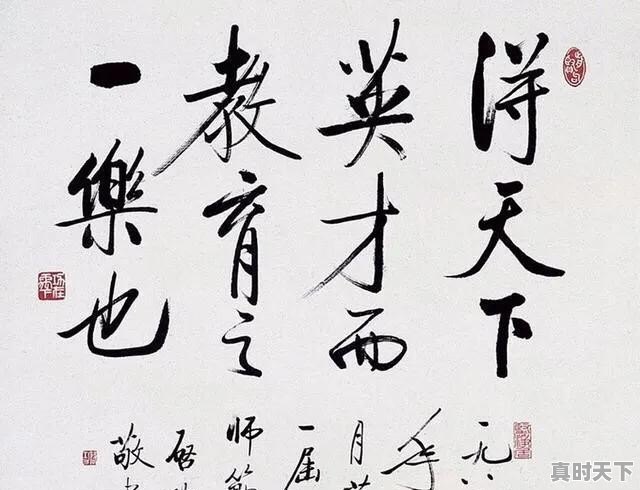 得天下
英才而
教育之
一樂也
一九八
年
月
一届
师範
啓
敬
真时天下